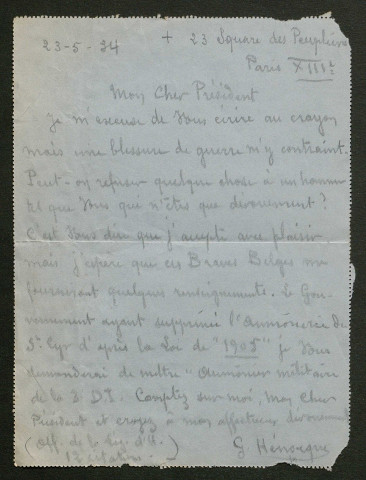 23-5-34 + 23 Square des Peupliers
Paris XIIIe
Mon Cher Président
Je m'excuse de Vous écrire au crayon
mais une blessure de guerre m'y contraint.
Peut-on refuser quelque chose à un homme
tel que Vous qui n'êtes que dévouement ?
C'est Vous dire que j'accepte avec plaisir
mais j'espère que ces Braves Belges me
fourniront quelques renseignements. Le Gou-
vernement ayant supprimé l'Aumônerie de
St Cyr d'après la Loi de "1905" je Vous
demanderai de mettre "Aumônier militaire
de la 3 D.I. Comptez sur moi, mon cher
Président et croyez à mon affectueux dévouement
(Off. de la Lég. d'H. ) G Hénocque
12 citations